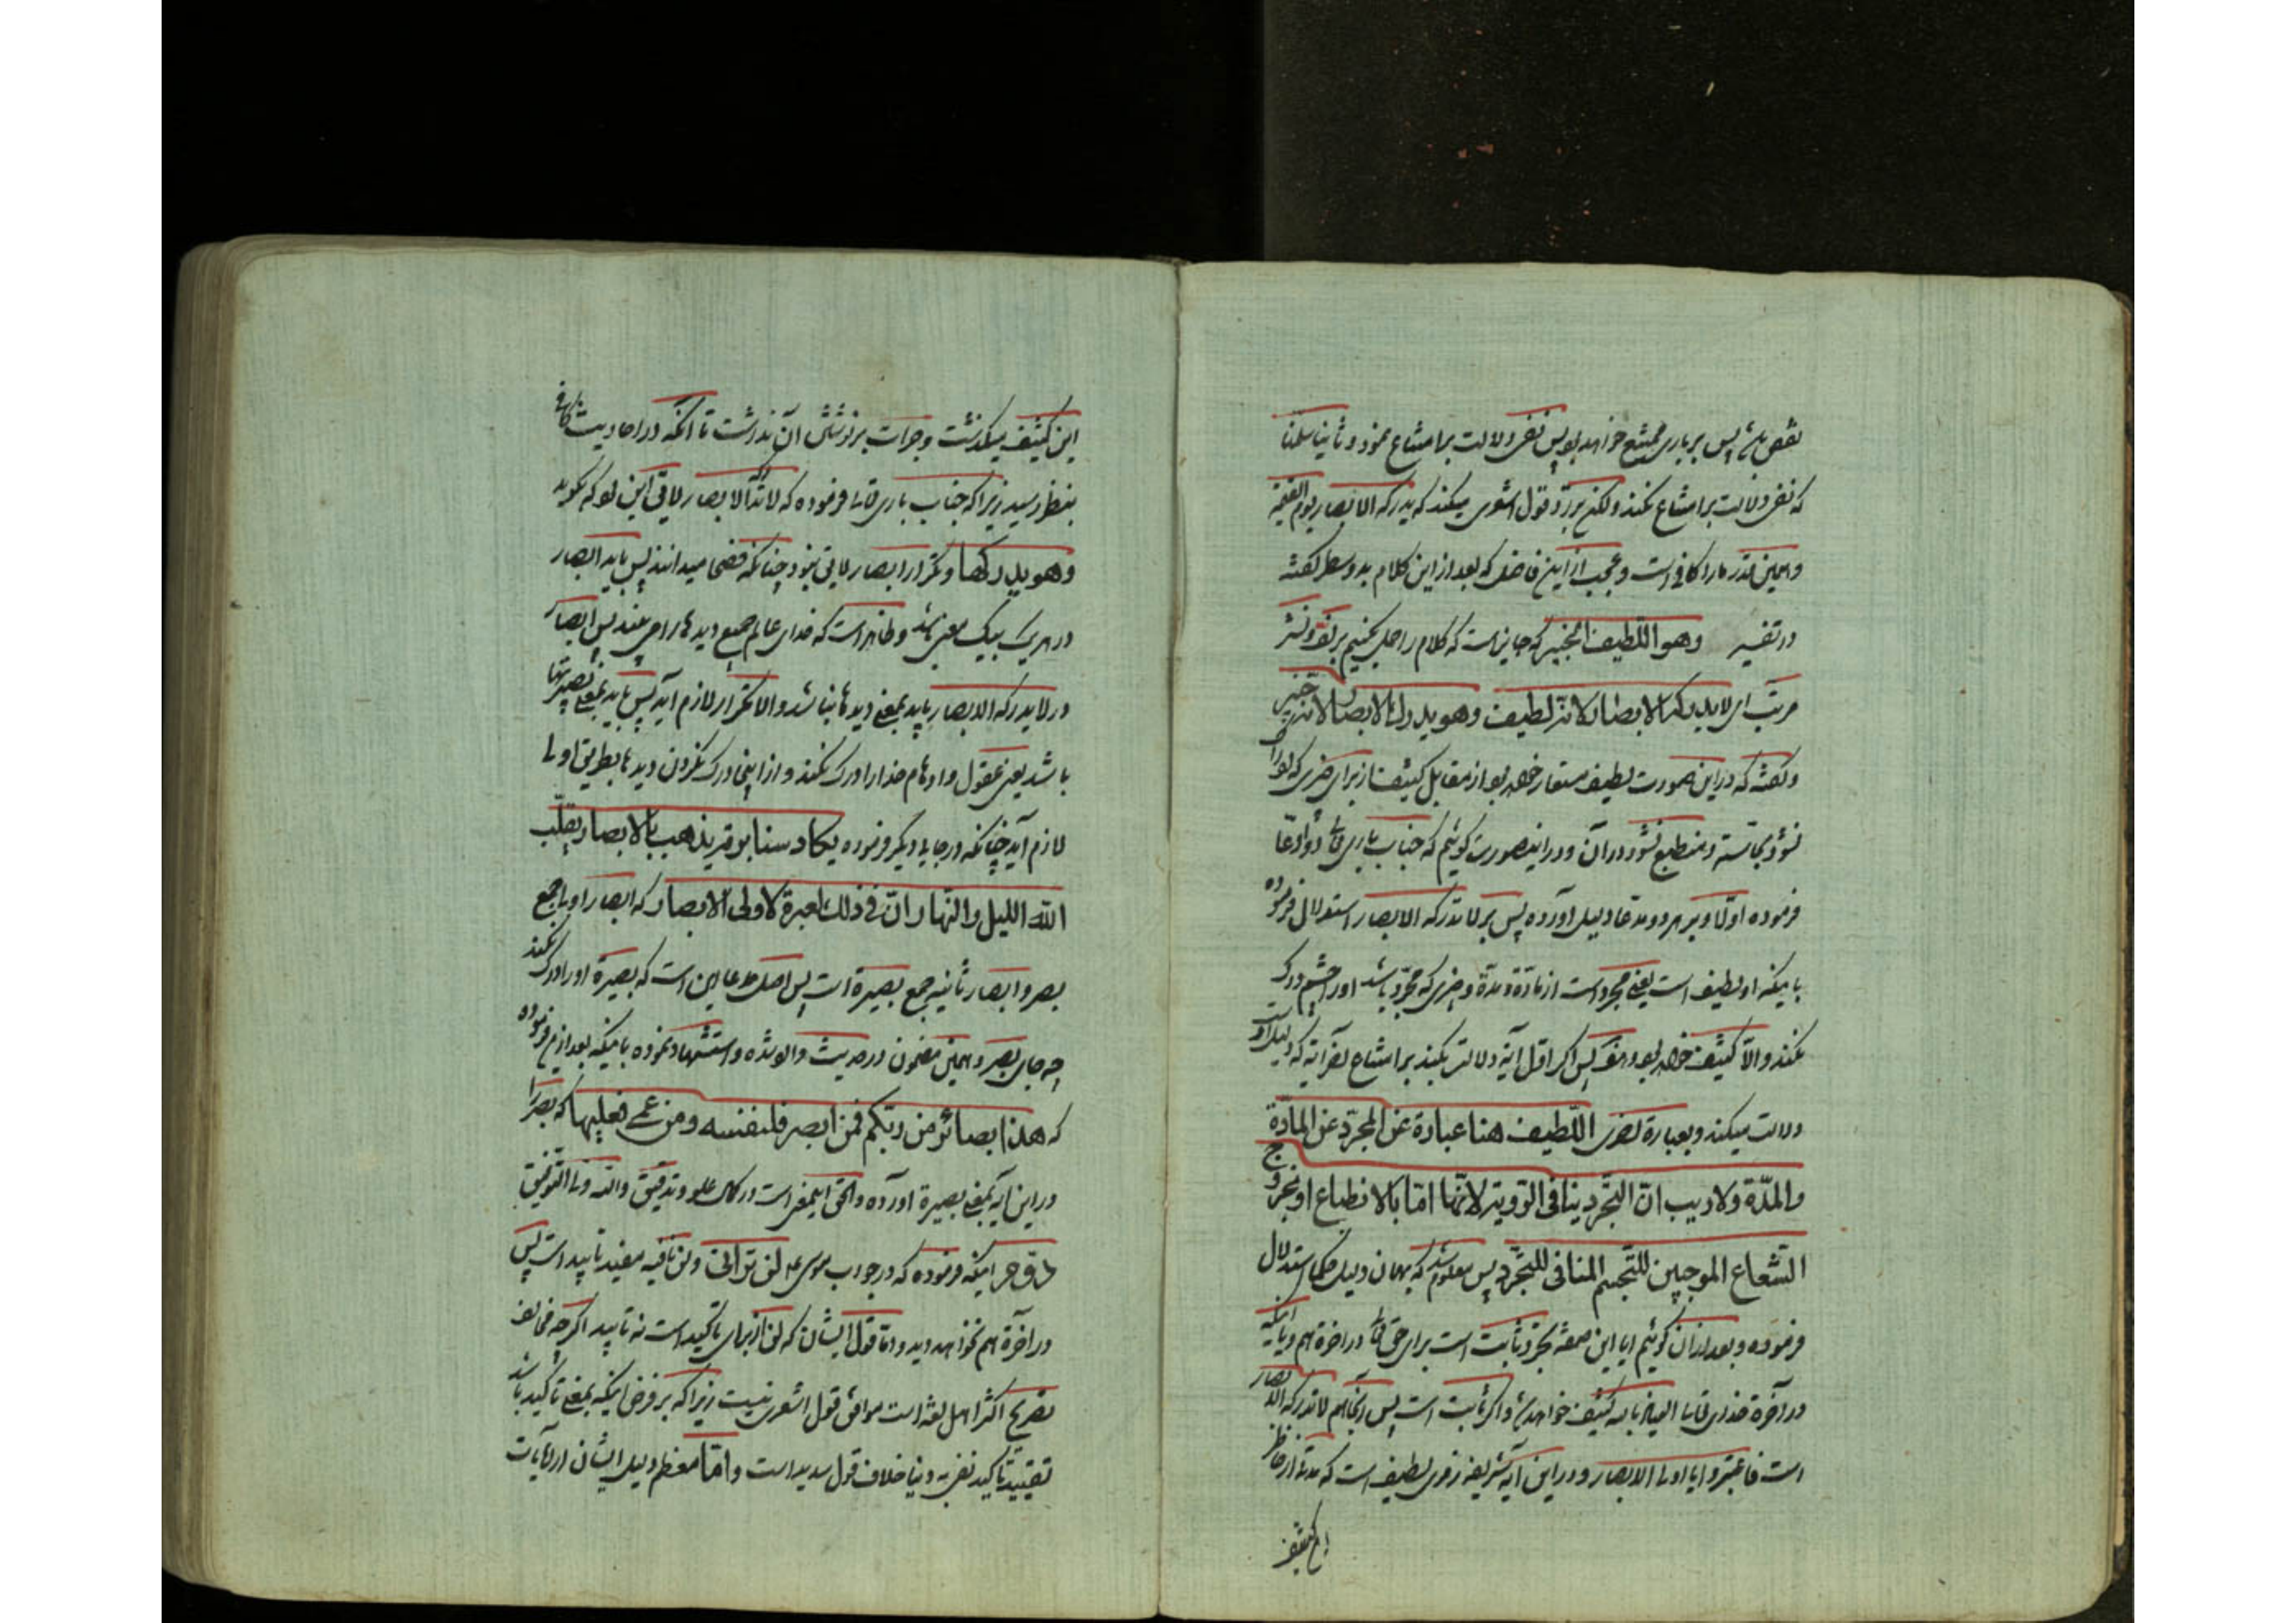 نقص باشد پس بر باری ممتنع خواهد بود پس نفی دلالت بر امتناع نمود و ثانیا سلمنا
که نفی دلالت بر امتناع نکند ولکن بر رد قول اشعری میکند که یدرکه الابصار یوم القیمة
و همین قدر ما را کافی است و عجب از این فاضل که بعد از این کلام بدو سطر گفته
در تفسیر وهو اللّطیف الخبیر که جایز است که کلام را حمل کنیم بر لف و نشر
مرتّب ای لا یدرکه الابصار لانّه لطیف وهو یدرک الابصار لانّه خبیر
و گفته که در این صورت لطیف مستعار خواهد بود از مقابل کثیف از برای چیزی که او را
نشود بحاسّه و منطبع نشود در آن و در اینصورت گوئیم که جناب باری تعالی دو ادّعا
فرموده اوّلا و بر هر دو مدّعا دلیل آورده پس بر لا تدرکه الابصار استدلال فرموده
باینکه او لطیف است یعنی مجرد است از مادّة و مدّة و چیزی که مجرّد باشد او را چشم درک
نکند والّا کثیف خواهد بود پس اگر اوّل آیة دلالت نکند بر امتناع آخر آیه که دلیل است
دلالت میکند و بعبارة اخری اللّطیف هنا عبارة عن المجرّد عن المادّة
والمدّة ولا ریب انّ التجّرد ینافی الرّویة لانّها امّا بالانطباع او بخروج
الشّعاع الموجبین للتجّسم المنافی للتّجرّد پس معلوم شد که بهمان دلیل حکما استدلال
فرموده و بعد از آن گوئیم ایا این صفة تجرّد ثابت است برای حق تعالی در اخرة هم و یا اینکه
در آخرة خدای تعالی العیاذ بالله کثیف خواهد شد و اگر ثابت است پس آنجا هم لا تدرکه الابصار
است فاعتبروا یا اولی الابصار و در این آیه شریفه رمزی لطیف است که
این کثیف
این کثیف میگذشت و جرات بر نوشتن آن نداشت تا آنکه در احادیث کافی
بنظر رسید زیرا که جناب باری تعالی فرموده که لا تدرکه الابصار لایق این بود که بگوید
وهو یدرکها و تکرار ابصار لایق نبود چنانکه فصحا میدانند پس باید ابصار
در هر یک بیک معنی باشد و ظاهر است که خدای عالم جمیع دیدها را می بیند پس ابصار
در لا یدرکه الابصار باید بمعنی دیدها نباشد والا تکرار لازم آید پس باید بمعنی بصیرتها
باشد یعنی عقول و اوهام خدا را درک نکنند و از اینجا درک نکردن دیدها بطریق اولی
لازم آید چنانکه در جای دیگر فرموده یکاد سنا برقه یذهب بالابصار یقلّب
الله اللیل والنّهار انّ فی ذلک لعبرة لاولی الابصار که ابصار اولی جمع
بصر و ابصار ثانیه جمع بصیرة است پس اصل مدعا این است که بصیرة او را درک نکند
چه جای بصر و همین مضمون در حدیث وارد شده و استشهاد نموده باینکه بعد از این فرموده
که هذا بصائر من ربّکم فمن ابصر فلنفسه و من عمی فعلیها که بصر را
در این آیه بمعنی بصیرة آورده والحق این معنی است در کمال علو و تدقیق والله ولی التوفیق
اینکه فرموده که در جواب موسی ع لن ترانی و لن نافیه مفید تایید است پس
در آخرة هم نخواهد دید و امّا قول ایشان که لن از برای تاکید است نه تایید اگرچه مخالف
تصریح اکثر اهل لغة است موافق قول اشعری نیست زیرا که بر فرض اینکه بمعنی تاکید باشد
تقیید تاکید نفی به دنیا خلاف قول سدید است و امّا معظم دلیل ایشان از آیات